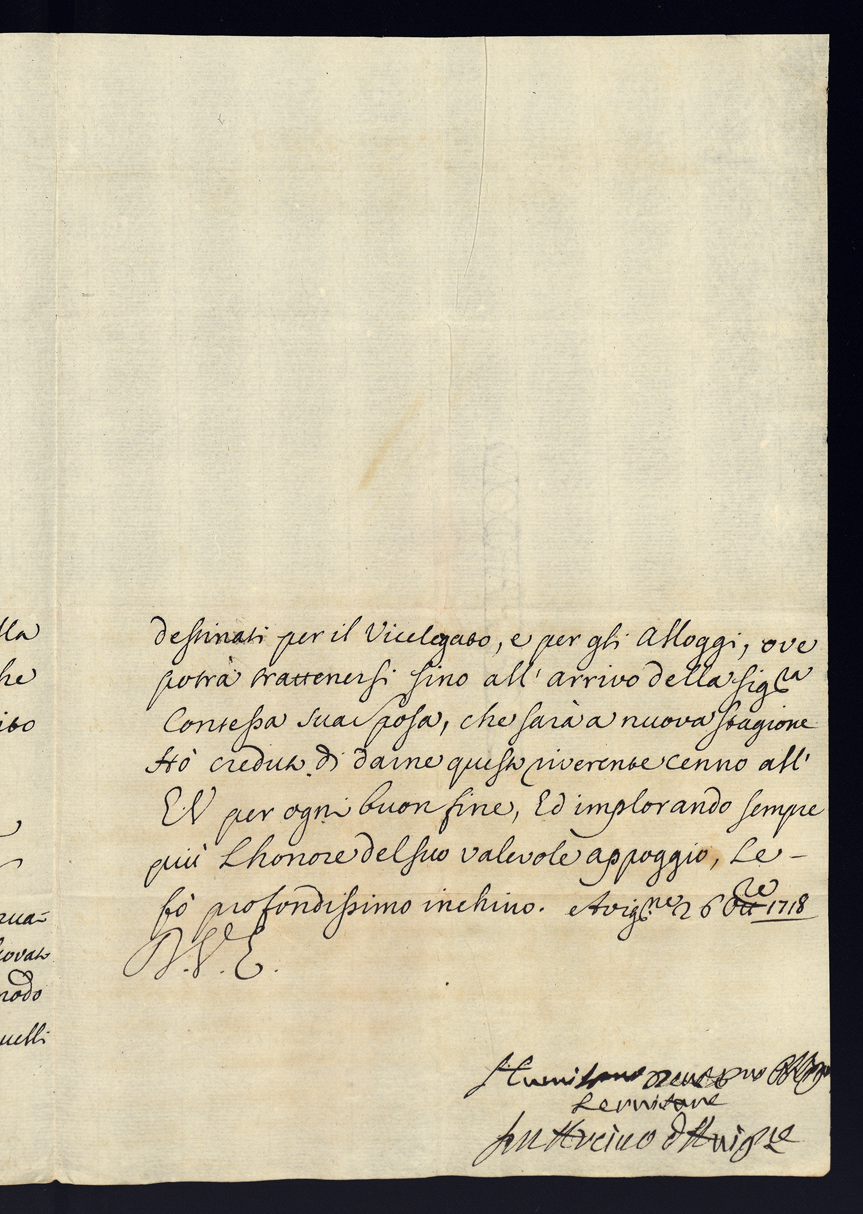 lla
he
destinati per il Vicelegato, e per gli Alloggi, ove
potrà trattenersi sino all' arrivo della Sig.ra
Contessa sua sposa, che sarà a nuova stagione
Hò creduto di darne questo riverente cenno all'
E.V. per ogni buon fine, Ed implorando sempre
più Lhonore del suo valevole appoggio, Le -
fò profondissimo inchino. Avig.ne 26 Ott.re 1718
D. V. E.
ovato
modo
uelli
Humilissimo
Servitore
d'Avig.ne